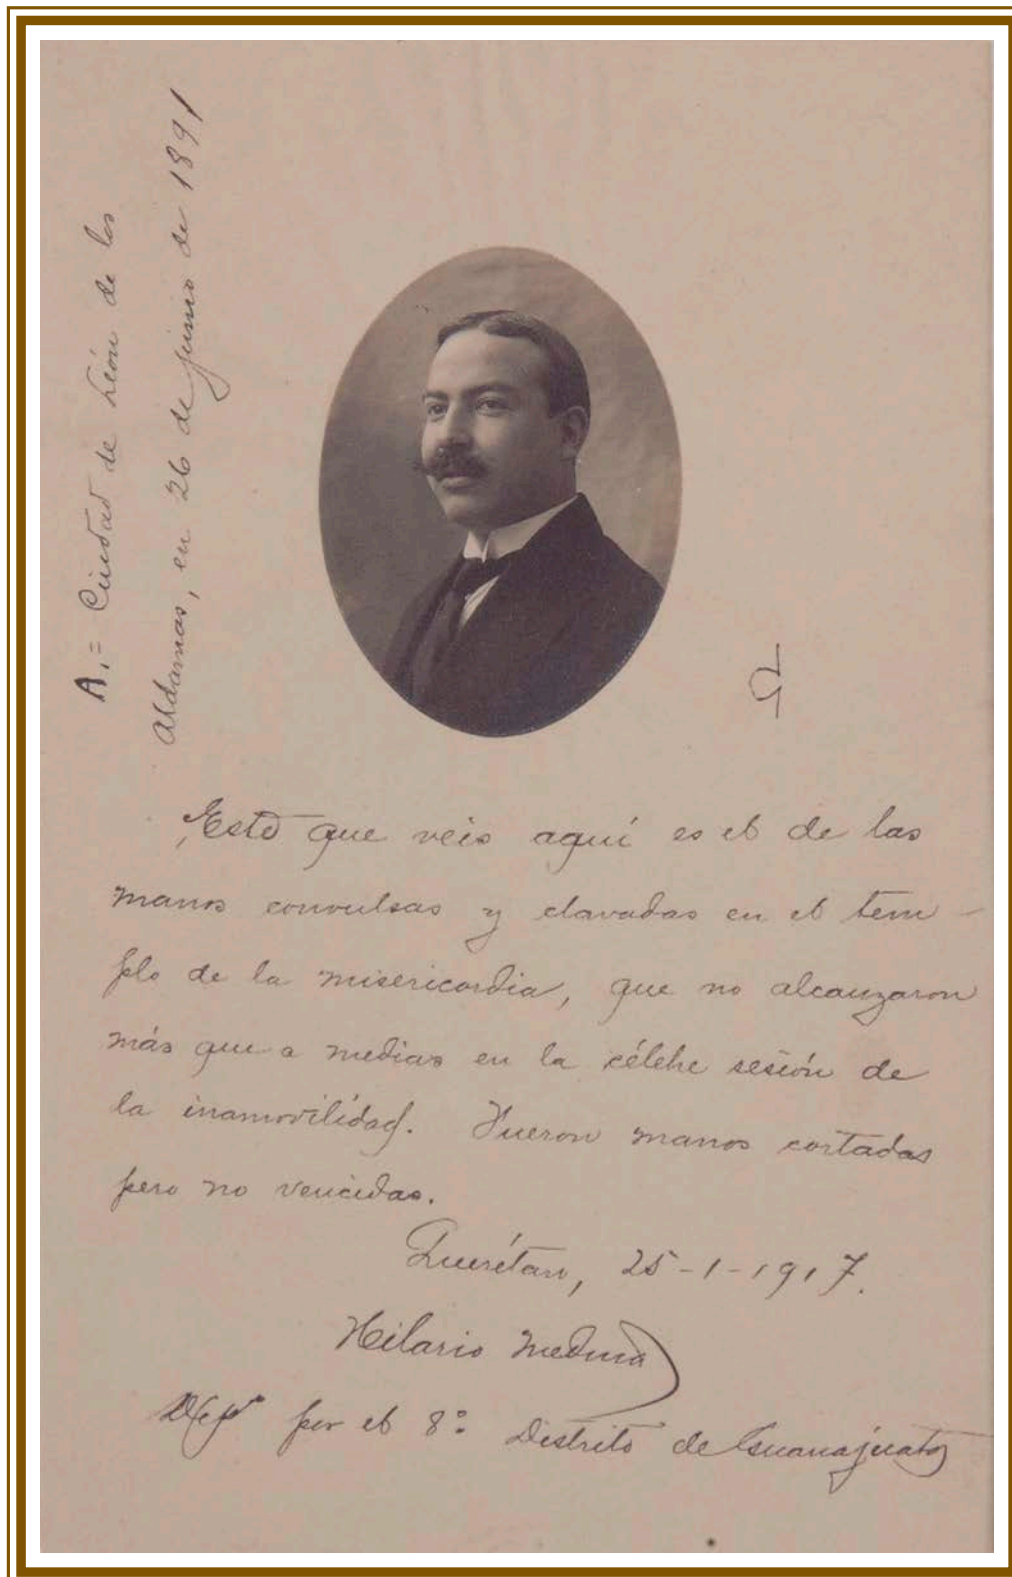 A.= Ciudad de León de los
Aldamas, en 26 de junio de 1891
Ω
Este que veis aquí es el de las
manos convulsas y clavadas en el tem-
plo de la misericordia, que no alcanzaron
más que a medias en la célebre sesión de
la inamovilidad. Fueron manos cortadas
pero no vencidas.
Querétaro, 25-1-1917.
Hilario Medina
Dip. por el 8º Distrito de Guanajuato